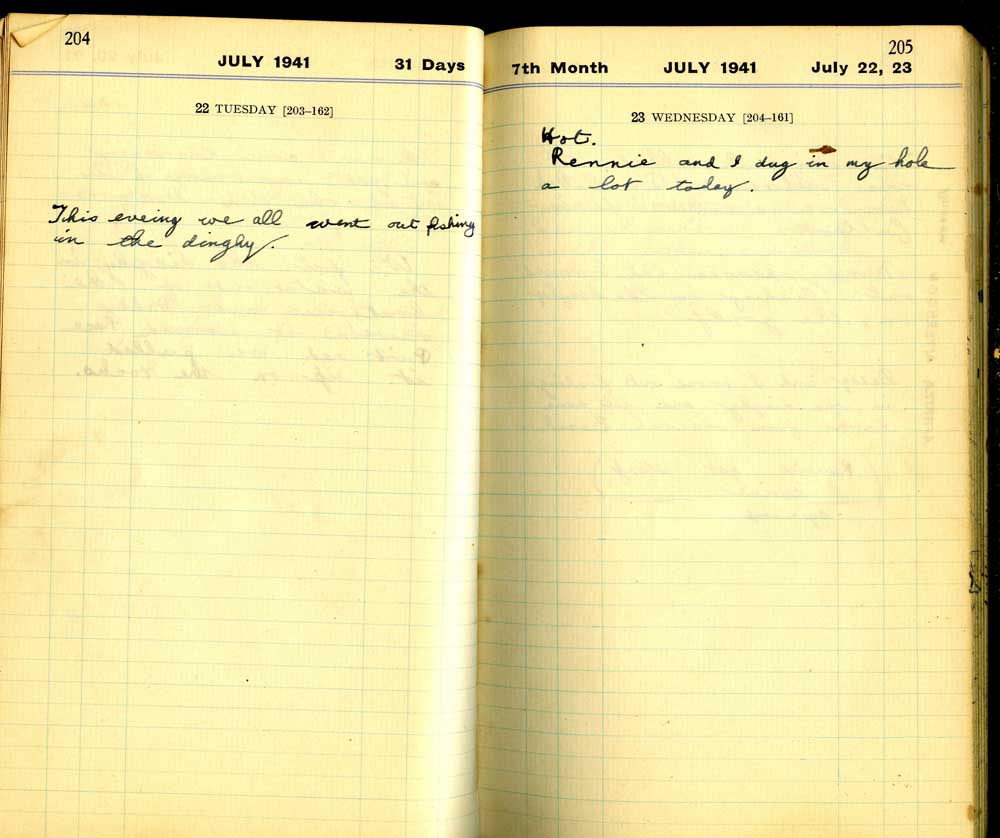 204
JULY 1941 31 Days
22 TUESDAY [203–162]
This eveing we all went out fishing
in the dinghy.
205
7th Month JULY 1941 July 22, 23
23 WEDNESDAY [204–161]
Hot.
Rennie and I dug in my hole
a lot today.